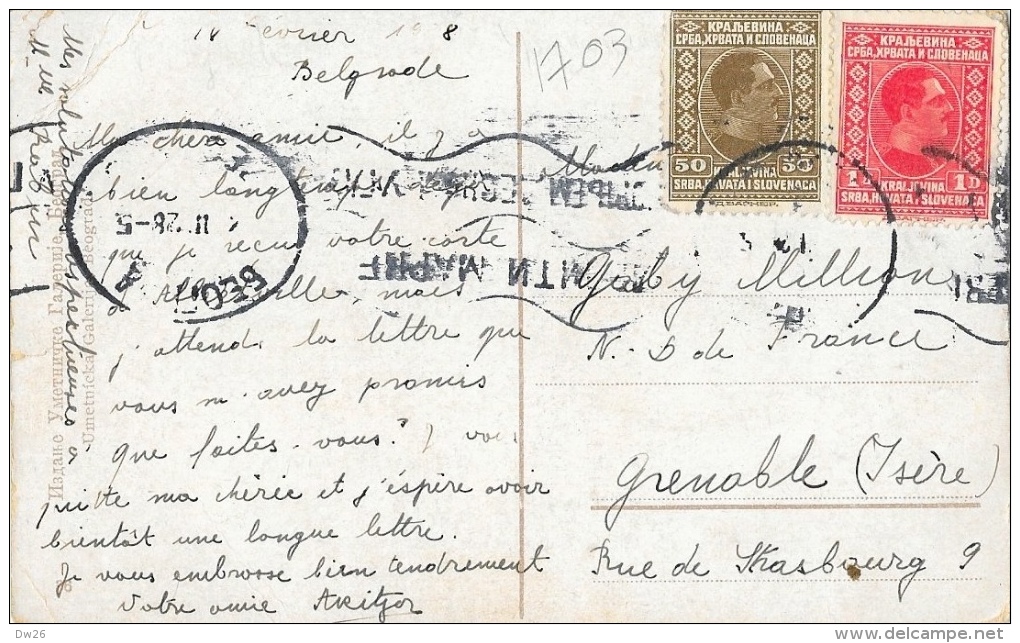 1703
février 1928
Belgrade
Ma chère amie, il y a
bien longtemps
que je reçu votre carte
d'Albertville, mais
j'attends la lettre que
vous m'avez promis
Que faites-vous? J vous
quitte ma chérie et j'espère avoir
bientôt une longue lettre.
Je vous embrasse bien tendrement
Votre amie
Mes salutations respectueuses à
M-lle
Издање Уметничке Галерије, Београд
Umetnička Galerija, Beograd
КРАЉЕВИНА
СРБА, ХРВАТА И СЛОВЕНАЦА
50 50
KRALJEVINA
SRBA, HRVATA I SLOVENACA
КРАЉЕВИНА
СРБА, ХРВАТА И СЛОВЕНАЦА
1D 1D
KRALJEVINA
SRBA, HRVATA I SLOVENACA
II 28-5
BEOG
Gaby Million
N. D de France
Grenoble (Isère)
Rue de Strasbourg 9
Dw26
www.delcampe.net